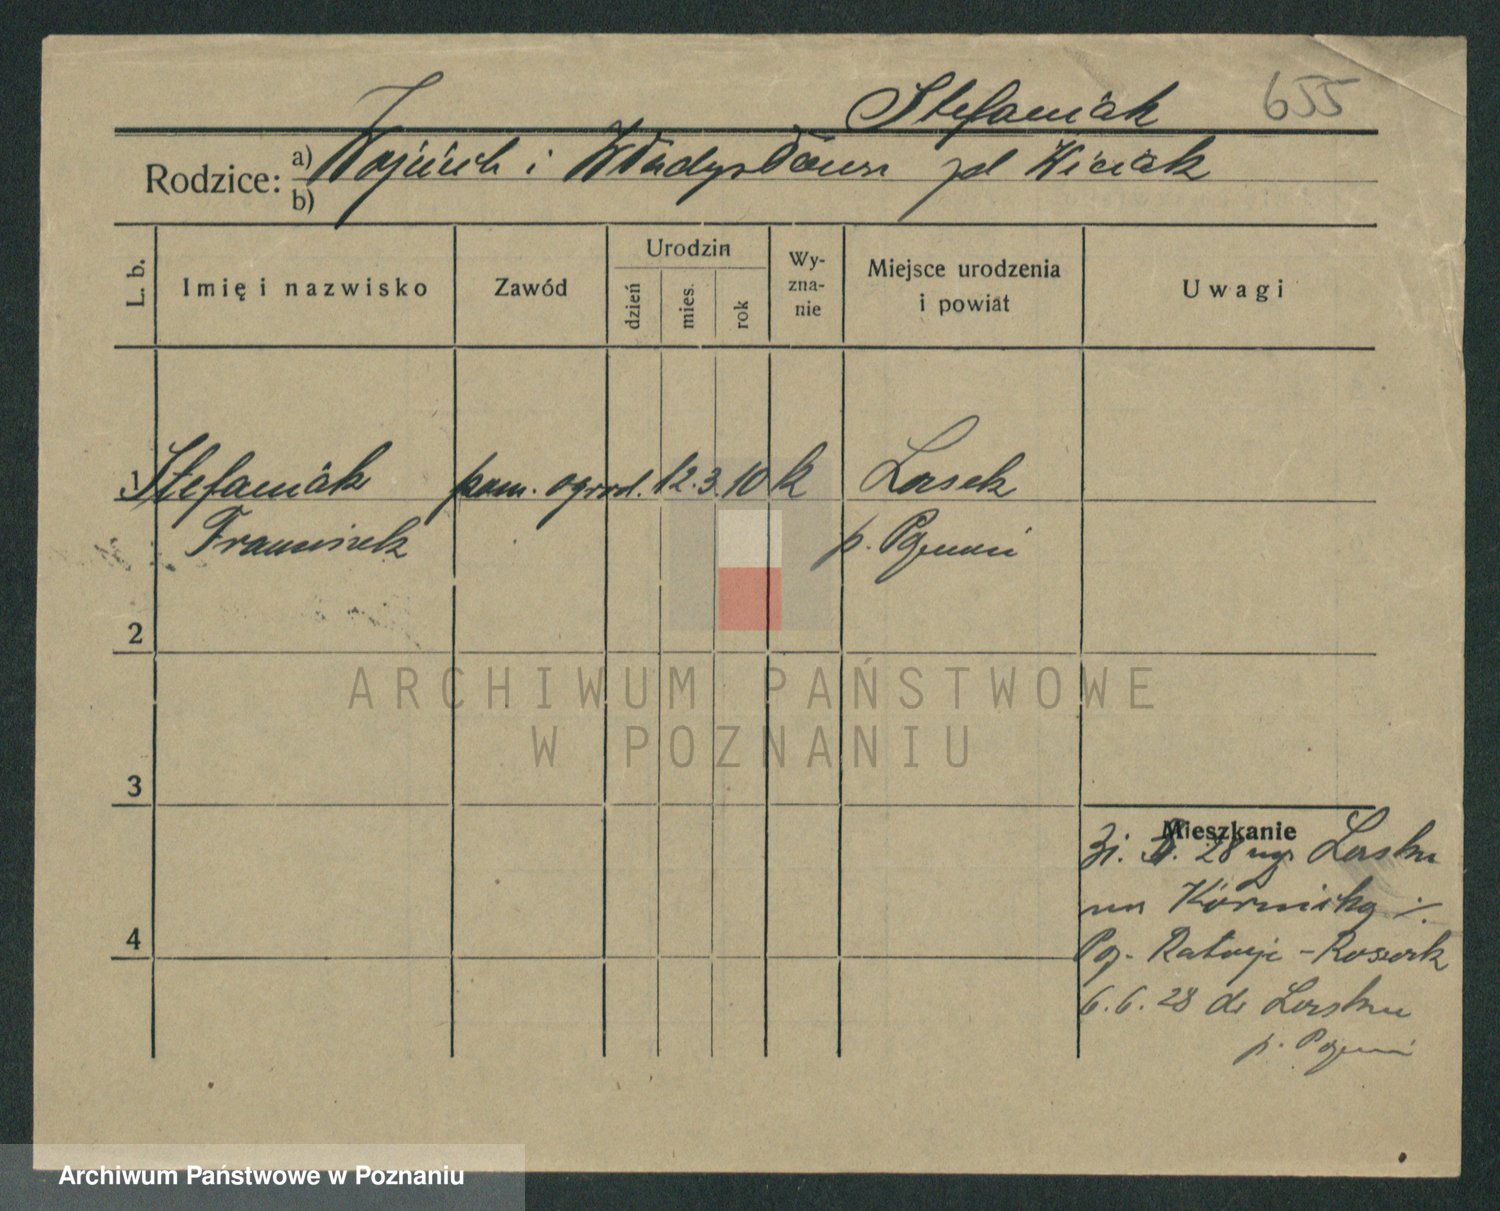 Stefaniak 655
Rodzice: a) Wojciech i Władysława zd Wiciak
b)
L. b. Imię i nazwisko Zawód Urodzin dzień mies. rok Wy-zna-nie Miejsce urodzenia i powiat Uwagi
1 Stefaniak pom. ogrod. 12. 3. 10 k Lasek
Franciszek p. Poznań
2
ARCHIWUM PAŃSTWOWE
W POZNANIU
3
Mieszkanie
28 Lasku
na Kórnicką
Poz. Rataje -
6. 6. 28 do Lasku
p. Poznań
4
Archiwum Państwowe w Poznaniu